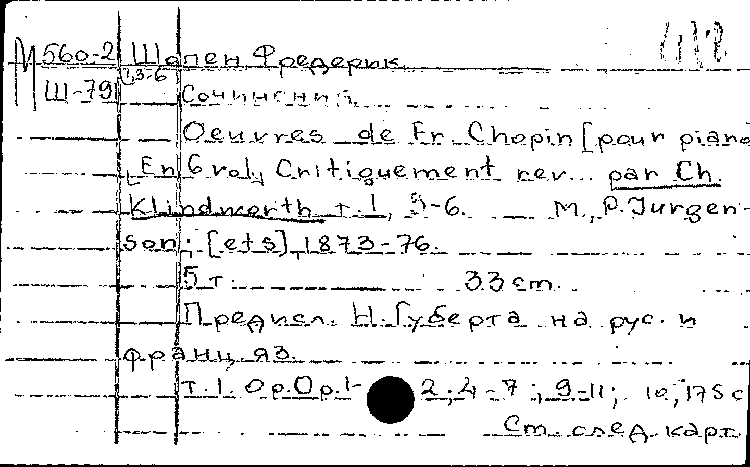 М 560-2 Шопен Фредерик
Ш-79 1,3-6 Сочинения.
Oeuvres de Fr. Chopin [pour piano
[En 6 vol] Critiquement rev... par Ch.
Klindworth т. 1, 3-6. М., P. Jurgen-
son; [ets], 1873-76.
5 т. 33 cm.
Предисл. Н. Губерта на рус. и
франц. яз.
Т. 1. Op. Op. 1- 2; 4-7; 9-11; 10, 175 с
См. след. карт.